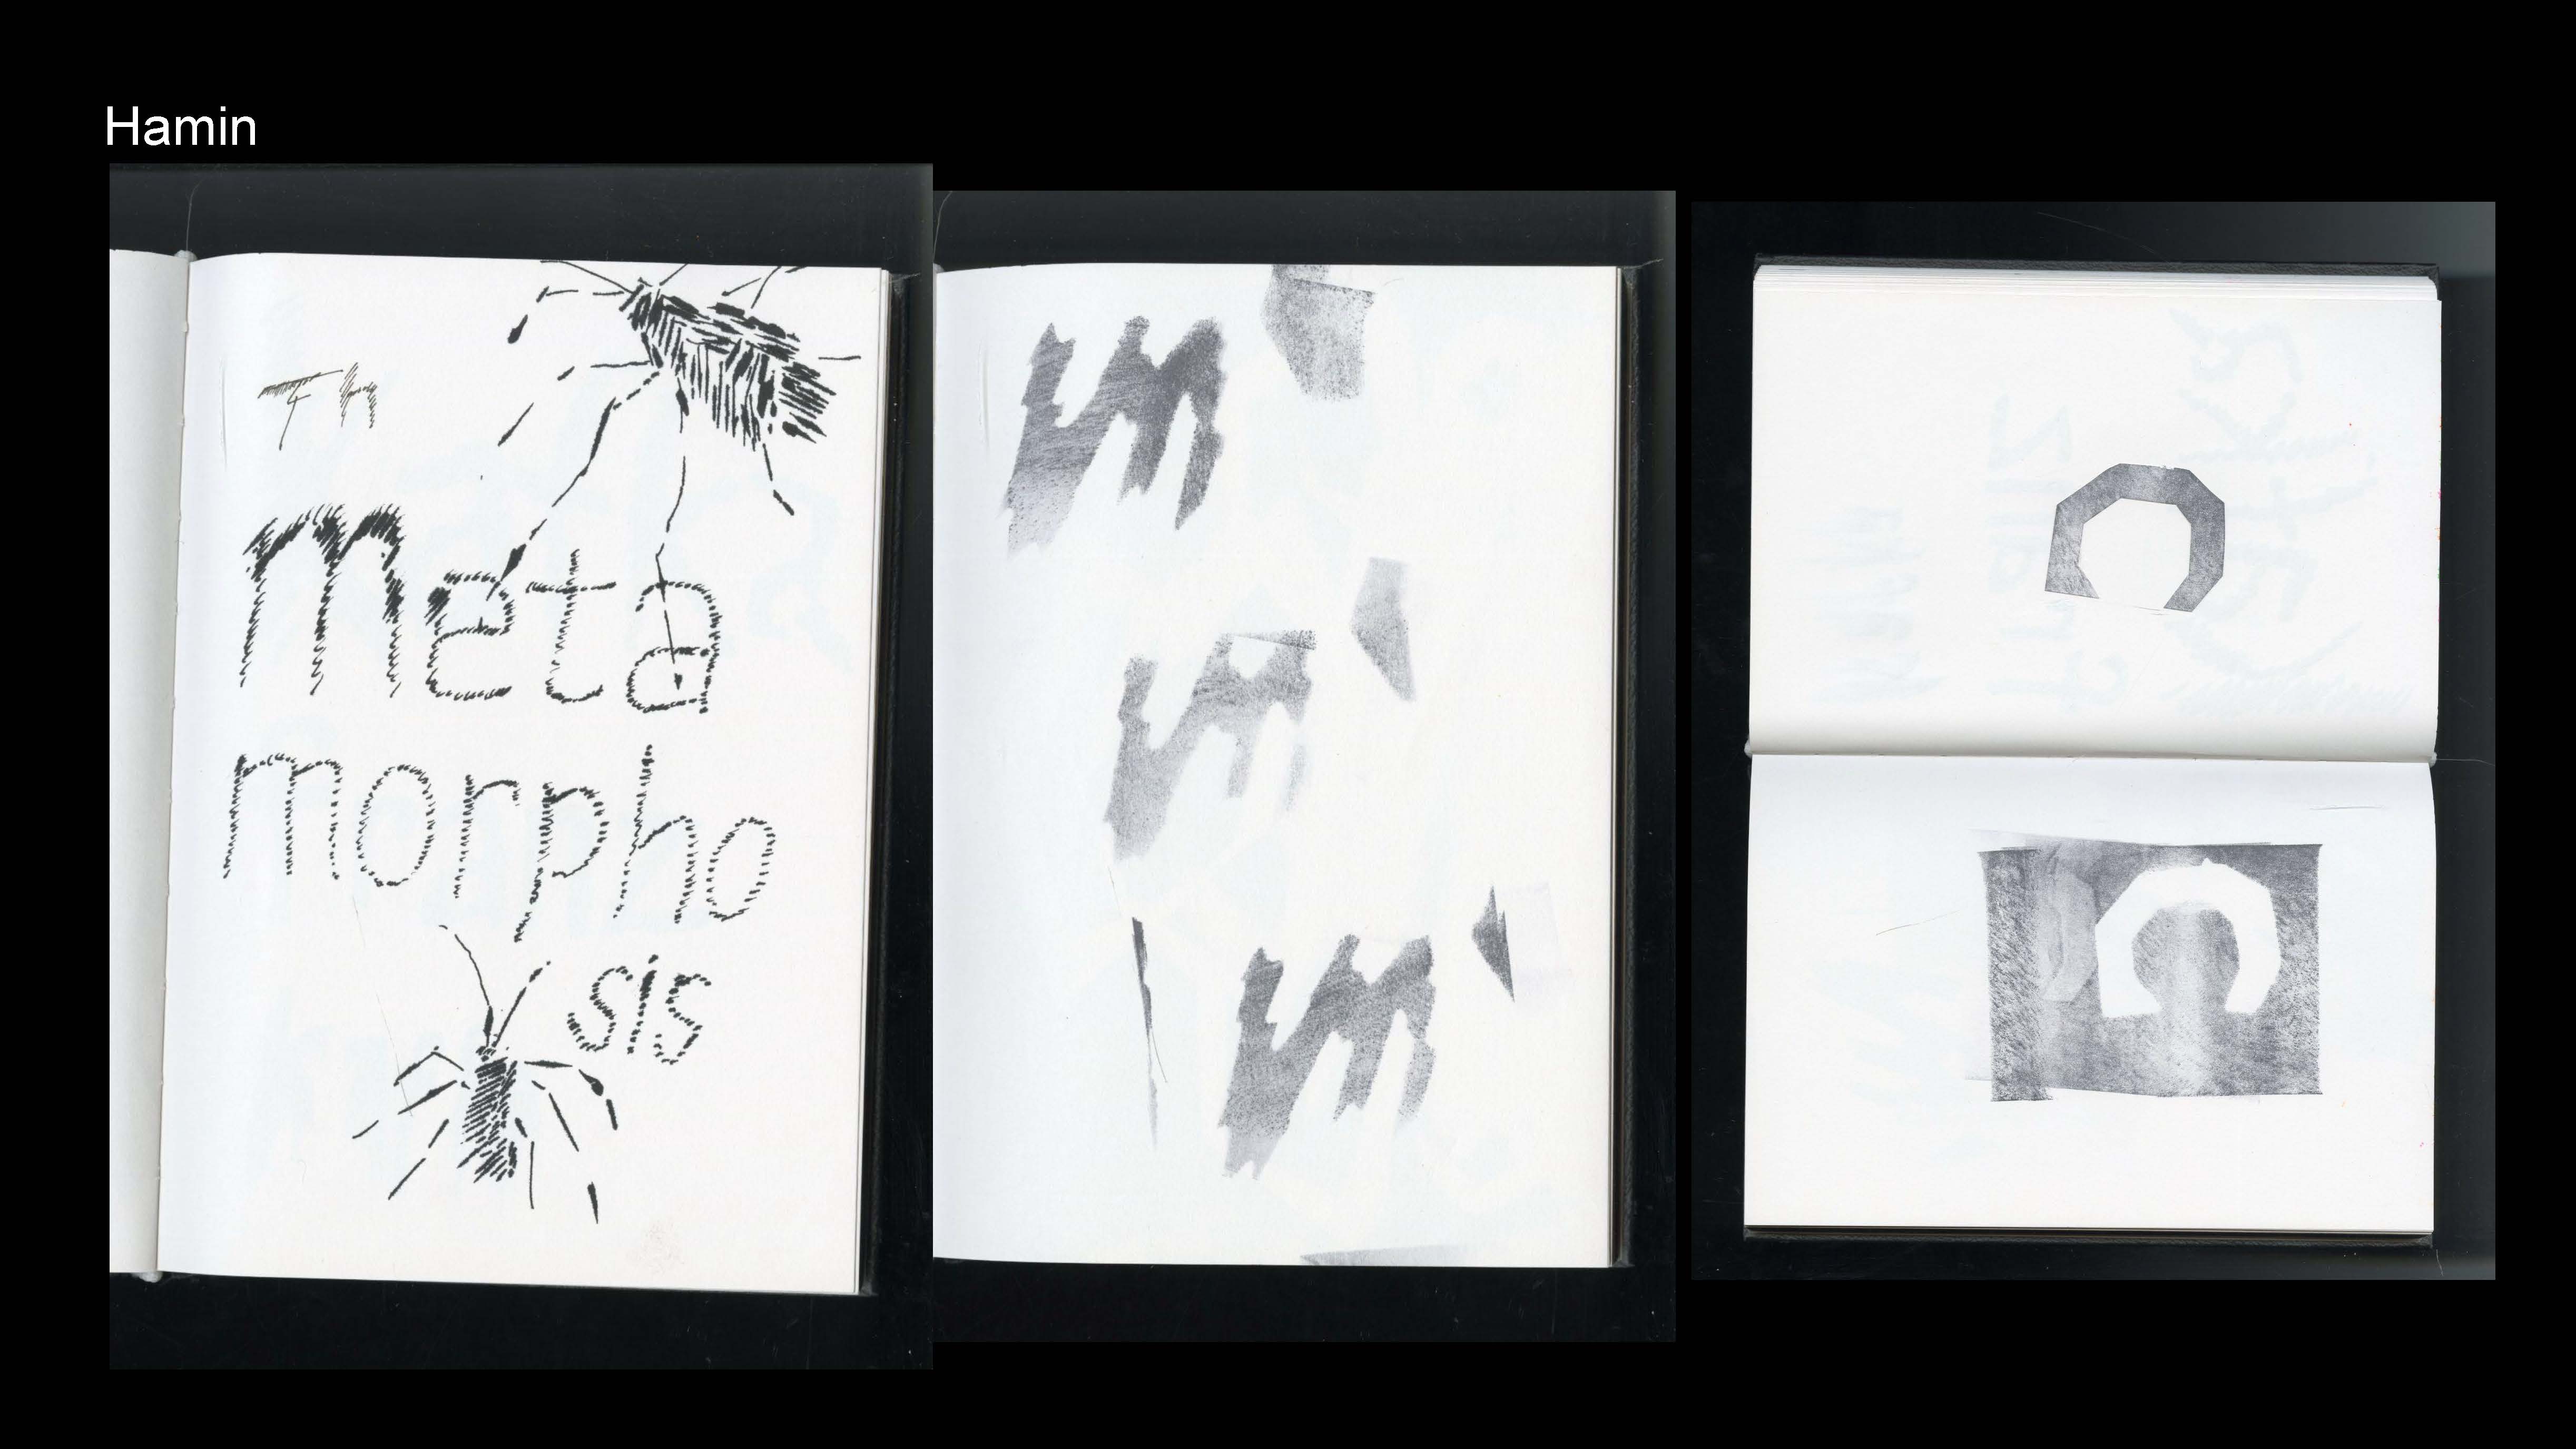 Hamin
Th
meta
morpho
sis
m
m
m